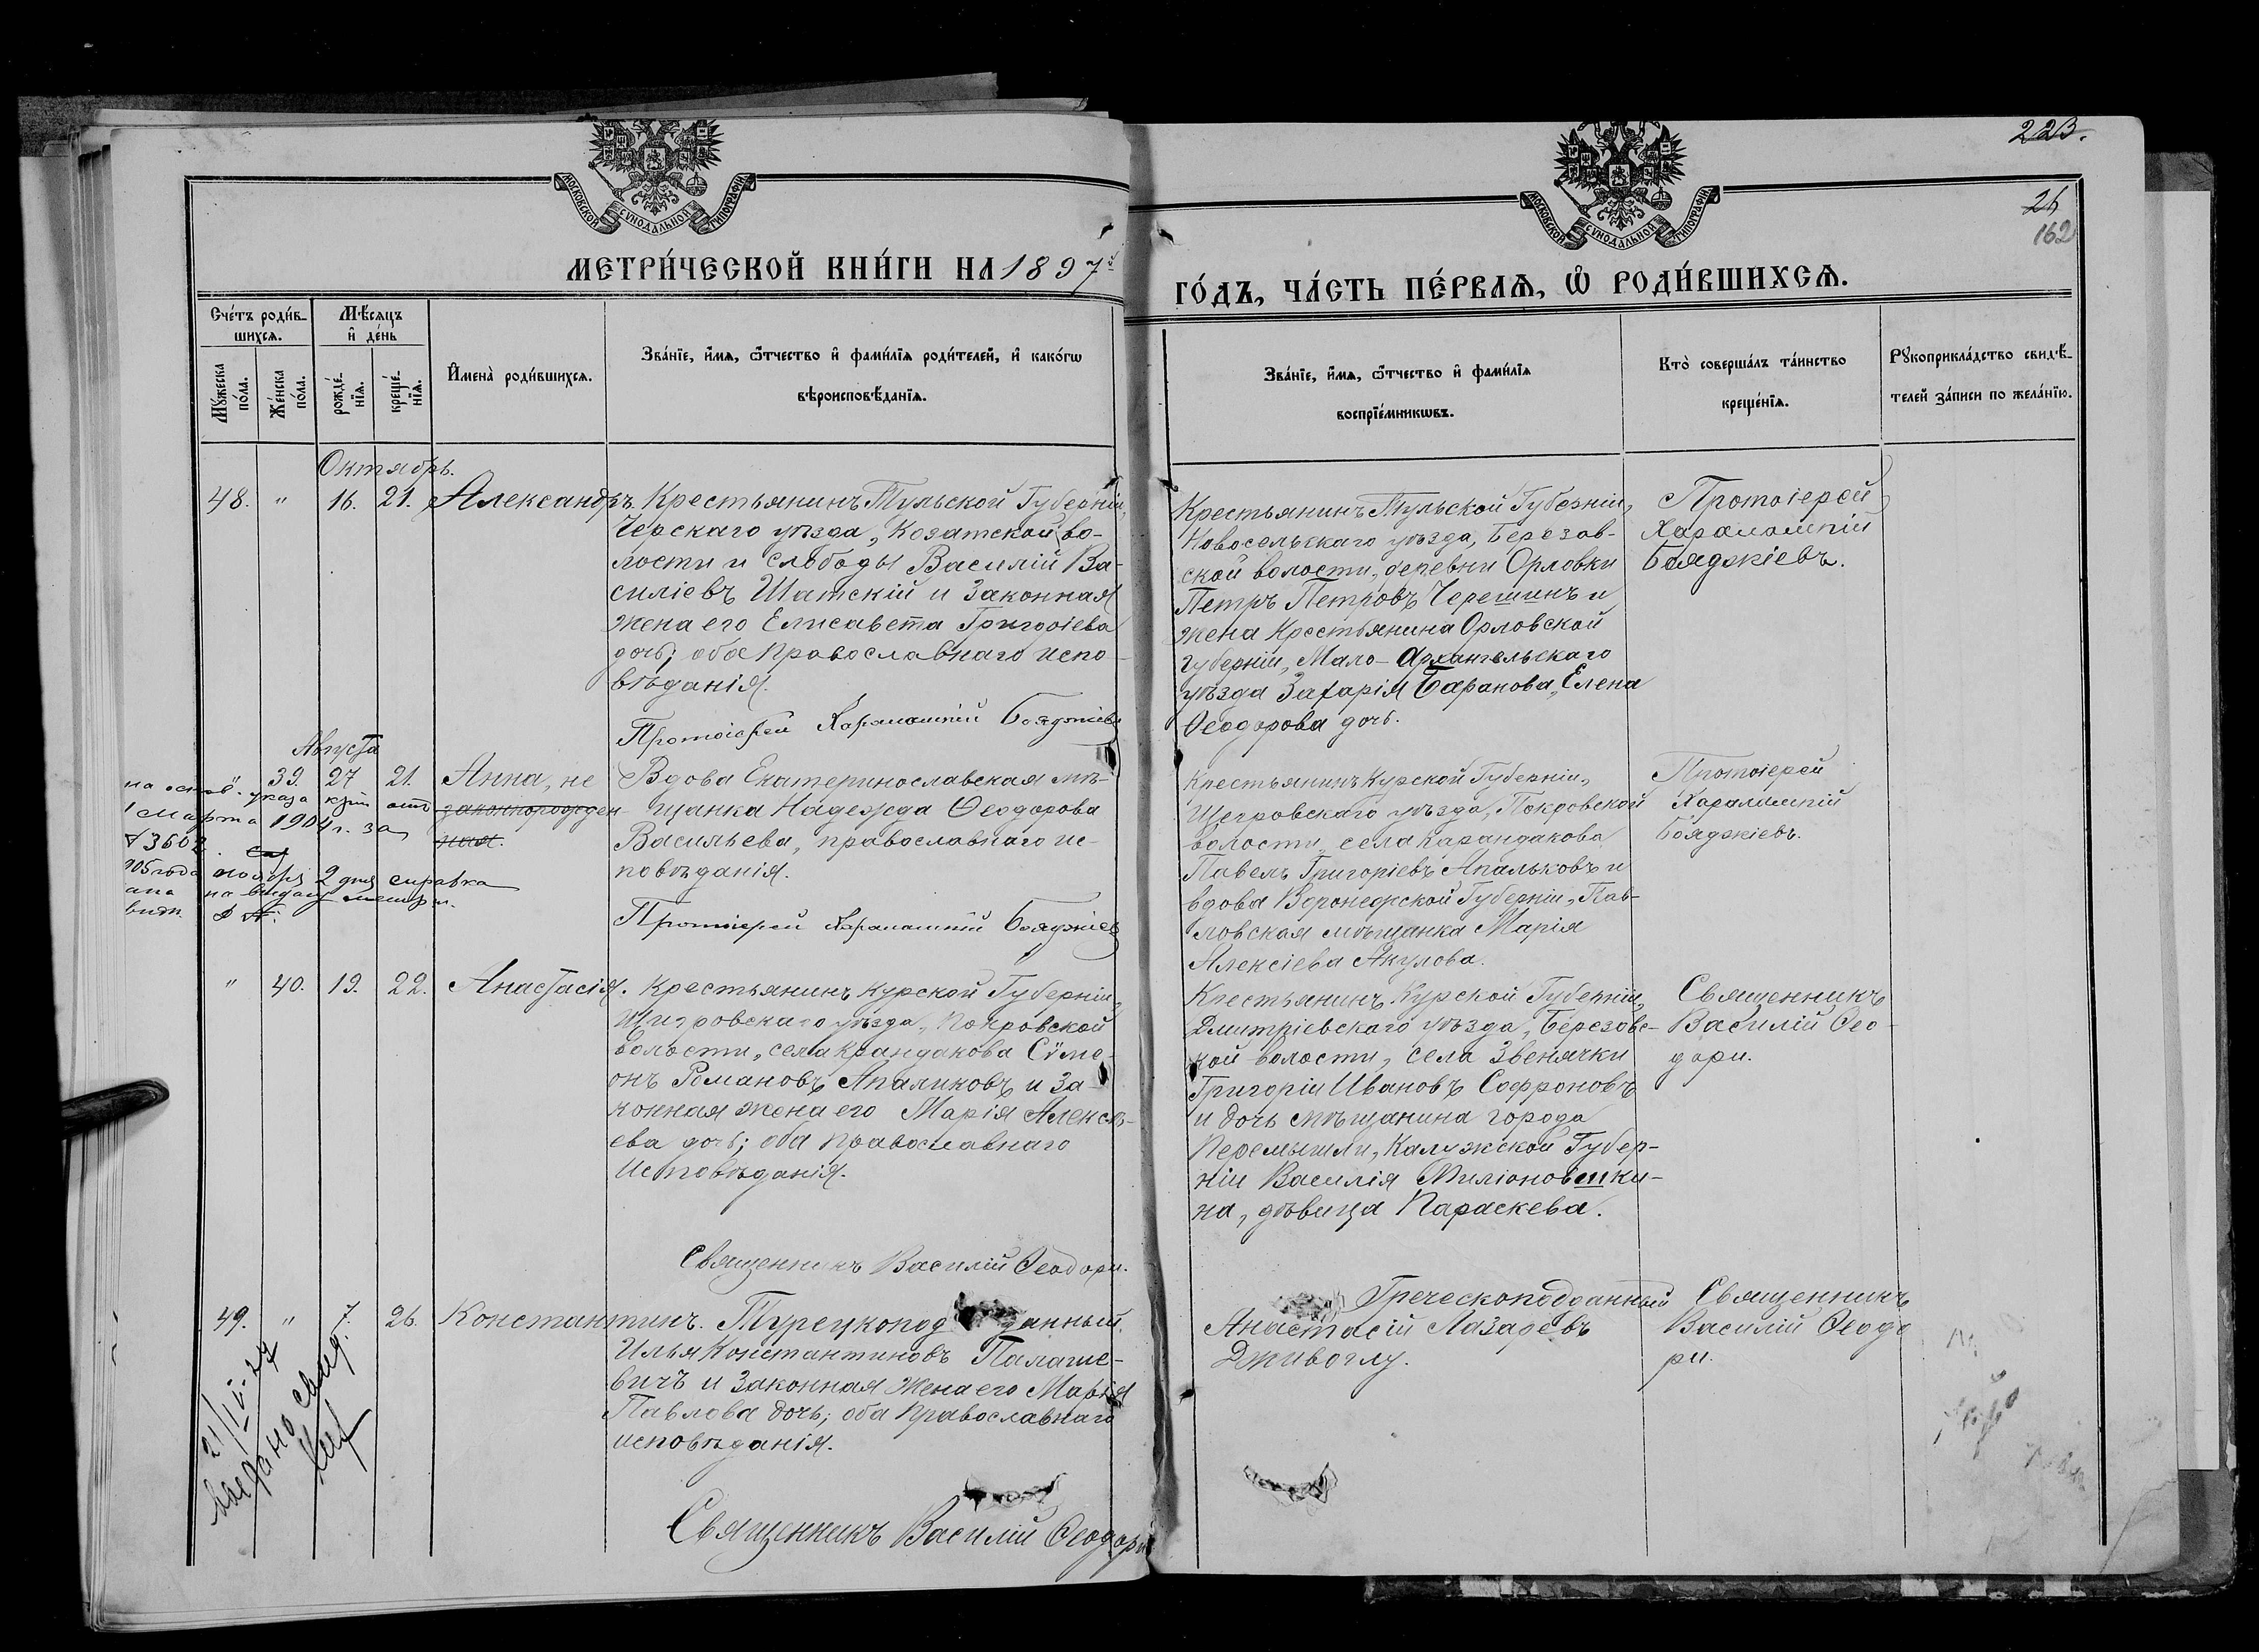 223.
26
162
МОСКОВСКОЙ СѴНОДАЛЬНОЙ ТИПОГРАФІИ
МОСКОВСКОЙ СѴНОДАЛЬНОЙ ТИПОГРАФІИ
МЕТРИ́ЧЕСКОЙ КНИ́ГИ НА 1897й
ГО́ДЪ, ЧА́СТЬ ПЕ́РВАѦ, Ѡ РОДИ́ВШИХСѦ.
Сче́тъ роди́в-
шихсѧ.
Мѣ́сяцъ
и҆ де́нь
Мꙋ́жеска
по́ла.
Же́нска
по́ла.
рожде́-
нїѧ.
креще́-
нїѧ.
И҆мена̀ роди́вшихсѧ.
Зва́нїе, и҆́мѧ, ѻ҆́тчество и҆ фами́лїѧ роди́телей, и҆ како́гѡ
вѣроисповѣ́данїѧ.
Зва́нїе, и҆́мѧ, ѻ҆́тчество и҆ фами́лїѧ
воспрїе́мникѡвъ.
Кто̀ соверша́лъ та́инство
креще́нїѧ.
Рꙋкоприкла́дство свидѣ́-
телей за́писи по жела́нїю.
Октябрь.
48. " 16. 21. Александръ. Крестьянинъ Тульской Губерніи,
Черскаго уѣзда, Козатской во-
лости и слободы Василій Ва-
силіевъ Шатскій и законная
жена его Елисавета Григоріева
дочь; оба Православнаго испо-
вѣданія.
Протоіерей Харалампій Бояджіевъ
Крестьянинъ Тульской Губерніи,
Новосельскаго уѣзда, Березов-
ской волости, деревни Орловки
Петръ Петровъ Черешинъ и
жена Крестьянина Орловской
губерніи, Мало-Архангельскаго
уѣзда Захарія Баранова, Елена
Ѳеодорова дочь.
Протоіерей
Харалампій
Бояджіевъ.
Августа
39. 27 21. Анна, не
законнорожден-
ная.
на основ. указа
1 Марта 1904 г. за
№ 3602
905 года ноября 2 дня справка
на выдачу метри.
Вдова Екатеринославская мѣ-
щанка Надежда Ѳеодорова
Васильева, православнаго ис-
повѣданія.
Протоіерей Харалампій Бояджіевъ
Крестьянинъ Курской Губерніи,
Щегровскаго уѣзда, Покровской
волости, села Карандакова
Павелъ Григоріевъ Апальковъ и
вдова Воронежской Губерніи, Пав-
ловская мѣщанка Марія
Алексіева Акулова.
Протоіерей
Харалампій
Бояджіевъ.
" 40. 19. 22. Анастасія. Крестьянинъ Курской Губерніи,
Щигровскаго уѣзда, Покровской
волости, села Крандакова Сѵме-
онъ Романовъ Апаликовъ и за-
конная жена его Марія Алексѣ-
ева дочь; оба Православнаго
Исповѣданія.
Священникъ Василій Ѳеодори.
Крестьянинъ Курской Губерніи,
Дмитріевскаго уѣзда, Березовс-
кой волости, села Звенячки
Григорій Ивановъ Софроновъ
и дочь мѣщанина города
Перемышли, Калужской Губер-
ніи Василія Миліоновшки-
на, дѣвица Параскева.
Священникъ
Василій Ѳео-
дори.
49. " 7. 26. Константинъ. Турецкопод данный
Илья Константиновъ Палаше-
вичъ и законная жена его Марія
Павлова дочь; оба Православнаго
исповѣданія.
Священникъ Василій Ѳеодори
Греческоподданный
Анастасій Лазаревъ
Дживоглу.
Священникъ
Василій Ѳеодо
ри.
выдано свид.